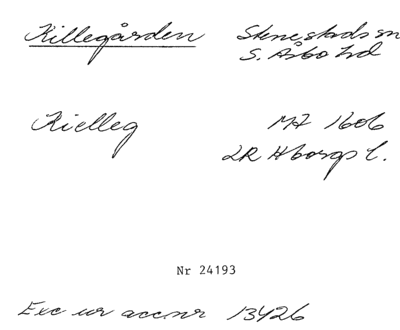 Killegården Stenestads sn
S. Åsbo hd
Kielleg M7 1606
LR Hborgs l.
Nr 24193
Exc ur acc.nr 13426